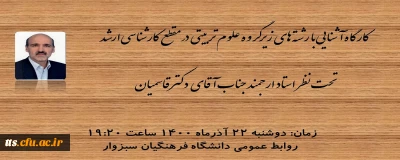 کارگاه آشنایی با رشته های زیرگروه علوم تربیتی در مقطع کارشناسی ارشد
تحت نظر استاد ارجمند جناب آقای دکتر قاسمیان
زمان: دوشنبه ۲۲ آذرماه ۱۴۰۰ ساعت ۱۹:۲۰
روابط عمومی دانشگاه فرهنگیان سبزوار
tts.cfu.ac.ir